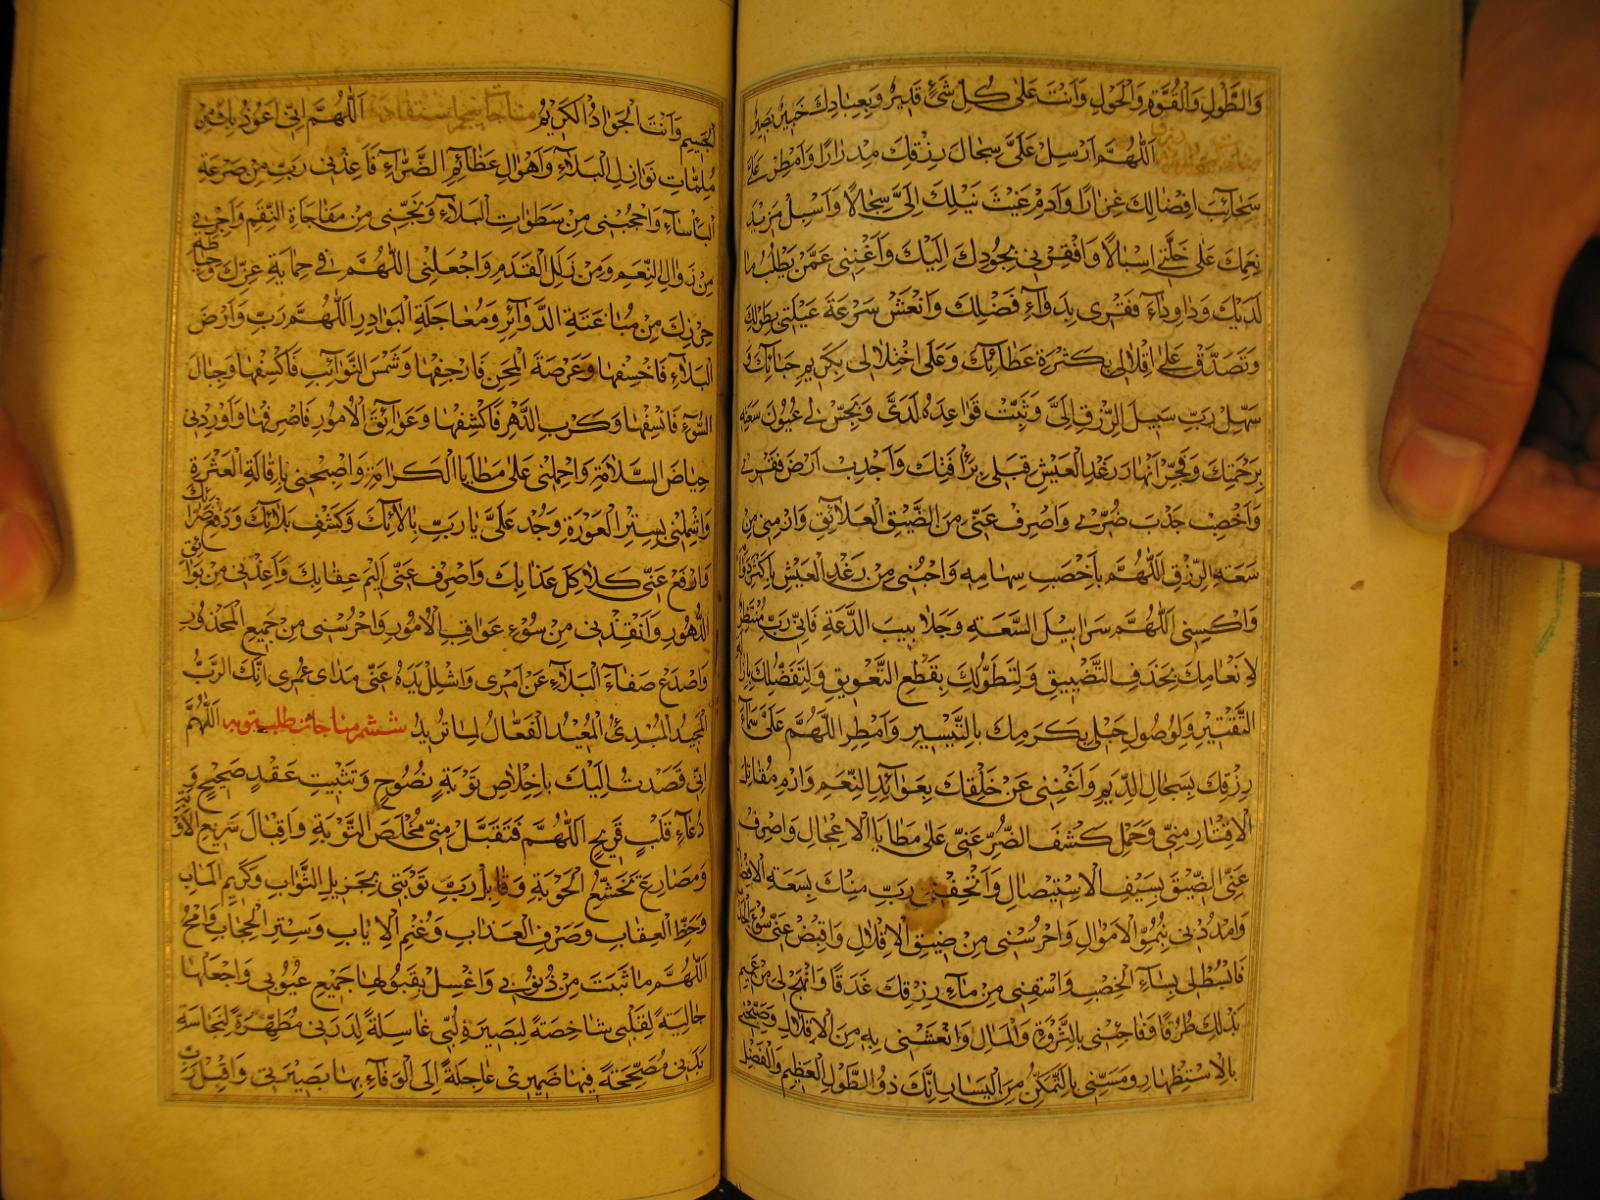 وَالطَّوْلِ وَالْقُوَّةِ وَالْحَوْلِ وَأَنْتَ عَلٰى كُلِّ شَيْءٍ قَدِيرٌ وَبِعِبَادِكَ خَبِيرٌ بَصِيرٌ
اَللّٰهُمَّ اَرْسِلْ عَلَيَّ سِجَالَ رِزْقِكَ مِدْرَارًا وَاَمْطِرْ عَلَيَّ
سَحَائِبَ اِفْضَالِكَ غِزَارًا وَاَدِمْ غَيْثَ نَيْلِكَ اِلَيَّ سِجَالًا وَاَسْبِلْ مَزِيدَ
نِعَمِكَ عَلٰى خَلَّتِي اِسْبَالًا وَاَفْقِرْنِي بِجُودِكَ اِلَيْكَ وَاَغْنِنِي عَمَّنْ يَطْلُبُ مَا
لَدَيْكَ وَدَاوِ دَاءَ فَقْرِي بِدَوَاءِ فَضْلِكَ وَانْعَشْ صَرْعَةَ عَيْلَتِي بِطَوْلِكَ
وَتَصَدَّقْ عَلٰى اِقْلَالِي بِكَثْرَةِ عَطَائِكَ وَعَلَى اخْتِلَالِي بِكَرِيمِ حِبَائِكَ وَ
سَهِّلْ رَبِّ سَبِيلَ الرِّزْقِ اِلَيَّ وَثَبِّتْ قَوَاعِدَهُ لَدَيَّ وَبَجِّسْ لِي عُيُونَ سَعَةِ
بِرَحْمَتِكَ وَفَجِّرْ اَنْهَارَ رَغَدِ الْعَيْشِ قِبَلِي بِرَأْفَتِكَ وَاَجْدِبْ اَرْضَ فَقْرِي
وَاَخْصِبْ جَدْبَ ضُرِّي وَاصْرِفْ عَنِّي مِنَ الضَّيِّقِ الْعَلَائِقَ وَارْمِنِي مِنْ
سَعَةِ الرِّزْقِ اَللّٰهُمَّ بِاَخْصَبِ سِهَامِهِ وَاحْبُنِي مِنْ رَغَدِ الْعَيْشِ بِاَكْثَرِ دَوَامِهِ
وَاكْسِنِي اَللّٰهُمَّ سَرَابِيلَ السَّعَةِ وَجَلَابِيبَ الدَّعَةِ فَاِنِّي رَبِّ مُنْتَظِرٌ
لِاِنْعَامِكَ بِحَذْفِ التَّضْيِيقِ وَلِتَطَوُّلِكَ بِقَطْعِ التَّعْوِيقِ وَلِتَفَضُّلِكَ
التَّقْتِيرِ وَلِوُصُولِ حَبْلِي بِكَرَمِكَ بِالتَّيْسِيرِ وَاَمْطِرِ اللّٰهُمَّ عَلَيَّ سَمَاءَ
رِزْقِكَ بِسِجَالِ الدِّيَمِ وَاَغْنِنِي عَنْ خَلْقِكَ بِعَوَائِدِ النِّعَمِ وَارْمِ مَقَاتِلَ
الْاِقْتَارِ مِنِّي وَحَمِّلْ كَشْفَ الضُّرِّ عَنِّي عَلٰى مَطَايَا الْاِعْجَالِ وَاصْرِفْ
عَنِّي الضِّيقَ بِسَيْفِ الْاِسْتِيصَالِ وَاَتْحِفْنِي رَبِّ مِنْكَ بِسَعَةِ الْاِفْضَالِ
وَامْدُدْنِي بِنُمُوِّ الْاَمْوَالِ وَاحْرُسْنِي مِنْ ضِيقِ الْاِقْلَالِ وَاقْبِضْ عَنِّي سُوءَ الْجَدْبِ
فَابْسُطْ لِي بِسَاطَ الْخِصْبِ وَاسْقِنِي مِنْ مَاءِ رِزْقِكَ غَدَقًا وَانْهَجْ لِي مِنْ عَمِيمِ
بَذْلِكَ طُرُقًا وَفَاجِئْنِي بِالثَّرْوَةِ وَالْمَالِ وَانْعَشْنِي بِهِ مِنَ الْاِقْلَالِ وَصَبِّحْنِي
بِالْاِسْتِظْهَارِ وَمَسِّنِي بِالتَّمَكُّنِ مِنَ الْيَسَارِ اِنَّكَ ذُو الطَّوْلِ الْعَظِيمِ وَالْفَضْلِ
الْجَسِيمِ وَاَنْتَ الْجَوَادُ الْكَرِيمُ اَللّٰهُمَّ اِنِّي اَعُوذُ بِكَ مِنْ
مُلِمَّاتِ نَوَازِلِ الْبَلَاءِ وَاَهْوَالِ عَظَائِمِ الضَّرَّاءِ فَاَعِذْنِي رَبِّ مِنْ صَرْعَةِ
الْبَأْسَاءِ وَاحْجُبْنِي مِنْ سَطَوَاتِ الْبَلَاءِ وَنَجِّنِي مِنْ مُفَاجَاةِ النِّقَمِ وَاَجِرْنِي
مِنْ زَوَالِ النِّعَمِ وَمِنْ زَلَلِ الْقَدَمِ وَاجْعَلْنِي اللّٰهُمَّ فِي حِمَايَةِ عِزِّكَ وَحِيَاطَةِ
حِرْزِكَ مِنْ مُبَاغَتَةِ الدَّوَائِرِ وَمُعَاجَلَةِ الْبَوَادِرِ اَللّٰهُمَّ رَبِّ وَاَرْضَ
الْبَلَاءِ فَاخْسِفْهَا وَعَرْصَةَ الْمِحَنِ فَارْجُفْهَا وَشَمْسَ النَّوَائِبِ فَاكْسِفْهَا وَجِبَالَ
السُّوءِ فَانْسِفْهَا وَكَرْبَ الدَّهْرِ فَاكْشِفْهَا وَعَوَائِقَ الْاُمُورِ فَاصْرِفْهَا وَاَوْرِدْنِي
حِيَاضَ السَّلَامَةِ وَاحْمِلْنِي عَلٰى مَطَايَا الْكَرَامَةِ وَاصْحَبْنِي بِاِقَالَةِ الْعَثْرَةِ
وَاشْمَلْنِي بِسِتْرِ الْعَوْرَةِ وَجُدْ عَلَيَّ يَا رَبِّ بِاٰلَائِكَ وَكَشْفِ بَلَائِكَ وَدَفْعِ ضَرَّائِكَ
وَارْفَعْ عَنِّي كَلَاكِلَ عَذَابِكَ وَاصْرِفْ عَنِّي اَلِيمَ عِقَابِكَ وَاَعِذْنِي مِنْ بَوَائِقِ
الدُّهُورِ وَاَنْقِذْنِي مِنْ سُوءِ عَوَاقِبِ الْاُمُورِ وَاحْرُسْنِي مِنْ جَمِيعِ الْمَحْذُورِ
وَاصْدَعْ صَفَاةَ الْبَلَاءِ عَنْ اَمْرِي وَاشْلُلْ يَدَهُ عَنِّي مَدَاى عُمْرِي اِنَّكَ الرَّبُّ
الْمَجِيدُ الْمُبْدِئُ الْمُعِيدُ الْفَعَّالُ لِمَا تُرِيدُ ششم مناجات طلب توبه اَللّٰهُمَّ
اِنِّي قَصَدْتُ اِلَيْكَ بِاِخْلَاصِ تَوْبَةٍ نَصُوحٍ وَتَثْبِيتِ عَقْدٍ صَحِيحٍ وَ
دُعَاءِ قَلْبٍ قَرِيحٍ اَللّٰهُمَّ فَتَقَبَّلْ مِنِّي مُخْلَصَ التَّوْبَةِ وَاِقْبَالَ سَرِيعِ الْاَوْبَةِ
وَمَصَارِعَ تَخَشُّعِ الْحَوْبَةِ وَقَابِلْ رَبِّ تَوْبَتِي بِجَزِيلِ الثَّوَابِ وَكَرِيمِ الْمَاٰبِ
وَحَطِّ الْعِقَابِ وَصَرْفِ الْعَذَابِ وَغُنْمِ الْاِيَابِ وَسِتْرِ الْحِجَابِ وَامْحُ
اَللّٰهُمَّ مَا ثَبَتَ مِنْ ذُنُوبِي وَاغْسِلْ بِقَبُولِهَا جَمِيعَ عُيُوبِي وَاجْعَلْهَا
جَالِيَةً لِقَلْبِي شَاخِصَةً لِبَصِيرَةِ لُبِّي غَاسِلَةً لِدَرَنِي مُطَهِّرَةً لِنَجَاسَةِ
بَدَنِي مُصَحِّحَةً فِيهَا ضَمِيرِي عَاجِلَةً اِلَى الْوَفَاءِ بِهَا بَصِيرَتِي وَاقْبَلْ